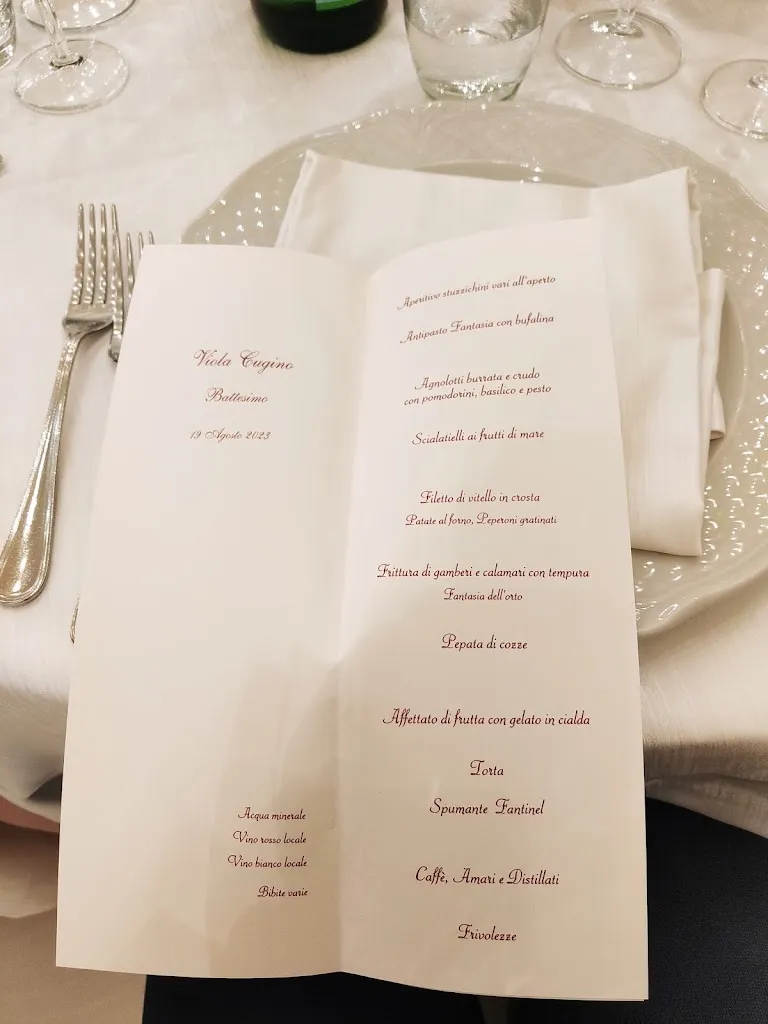 Viola Cugino
Battesimo
19 Agosto 2023
Acqua minerale
Vino rosso locale
Vino bianco locale
Bibite varie
Aperitivo stuzzichini vari all'aperto
Antipasto Fantasia con bufalina
Agnolotti burrata e crudo
con pomodorini, basilico e pesto
Scialatielli ai frutti di mare
Filetto di vitello in crosta
Patate al forno, Peperoni gratinati
Frittura di gamberi e calamari con tempura
Fantasia dell'orto
Pepata di cozze
Affettato di frutta con gelato in cialda
Torta
Spumante Fantinel
Caffè, Amari e Distillati
Frivolezze